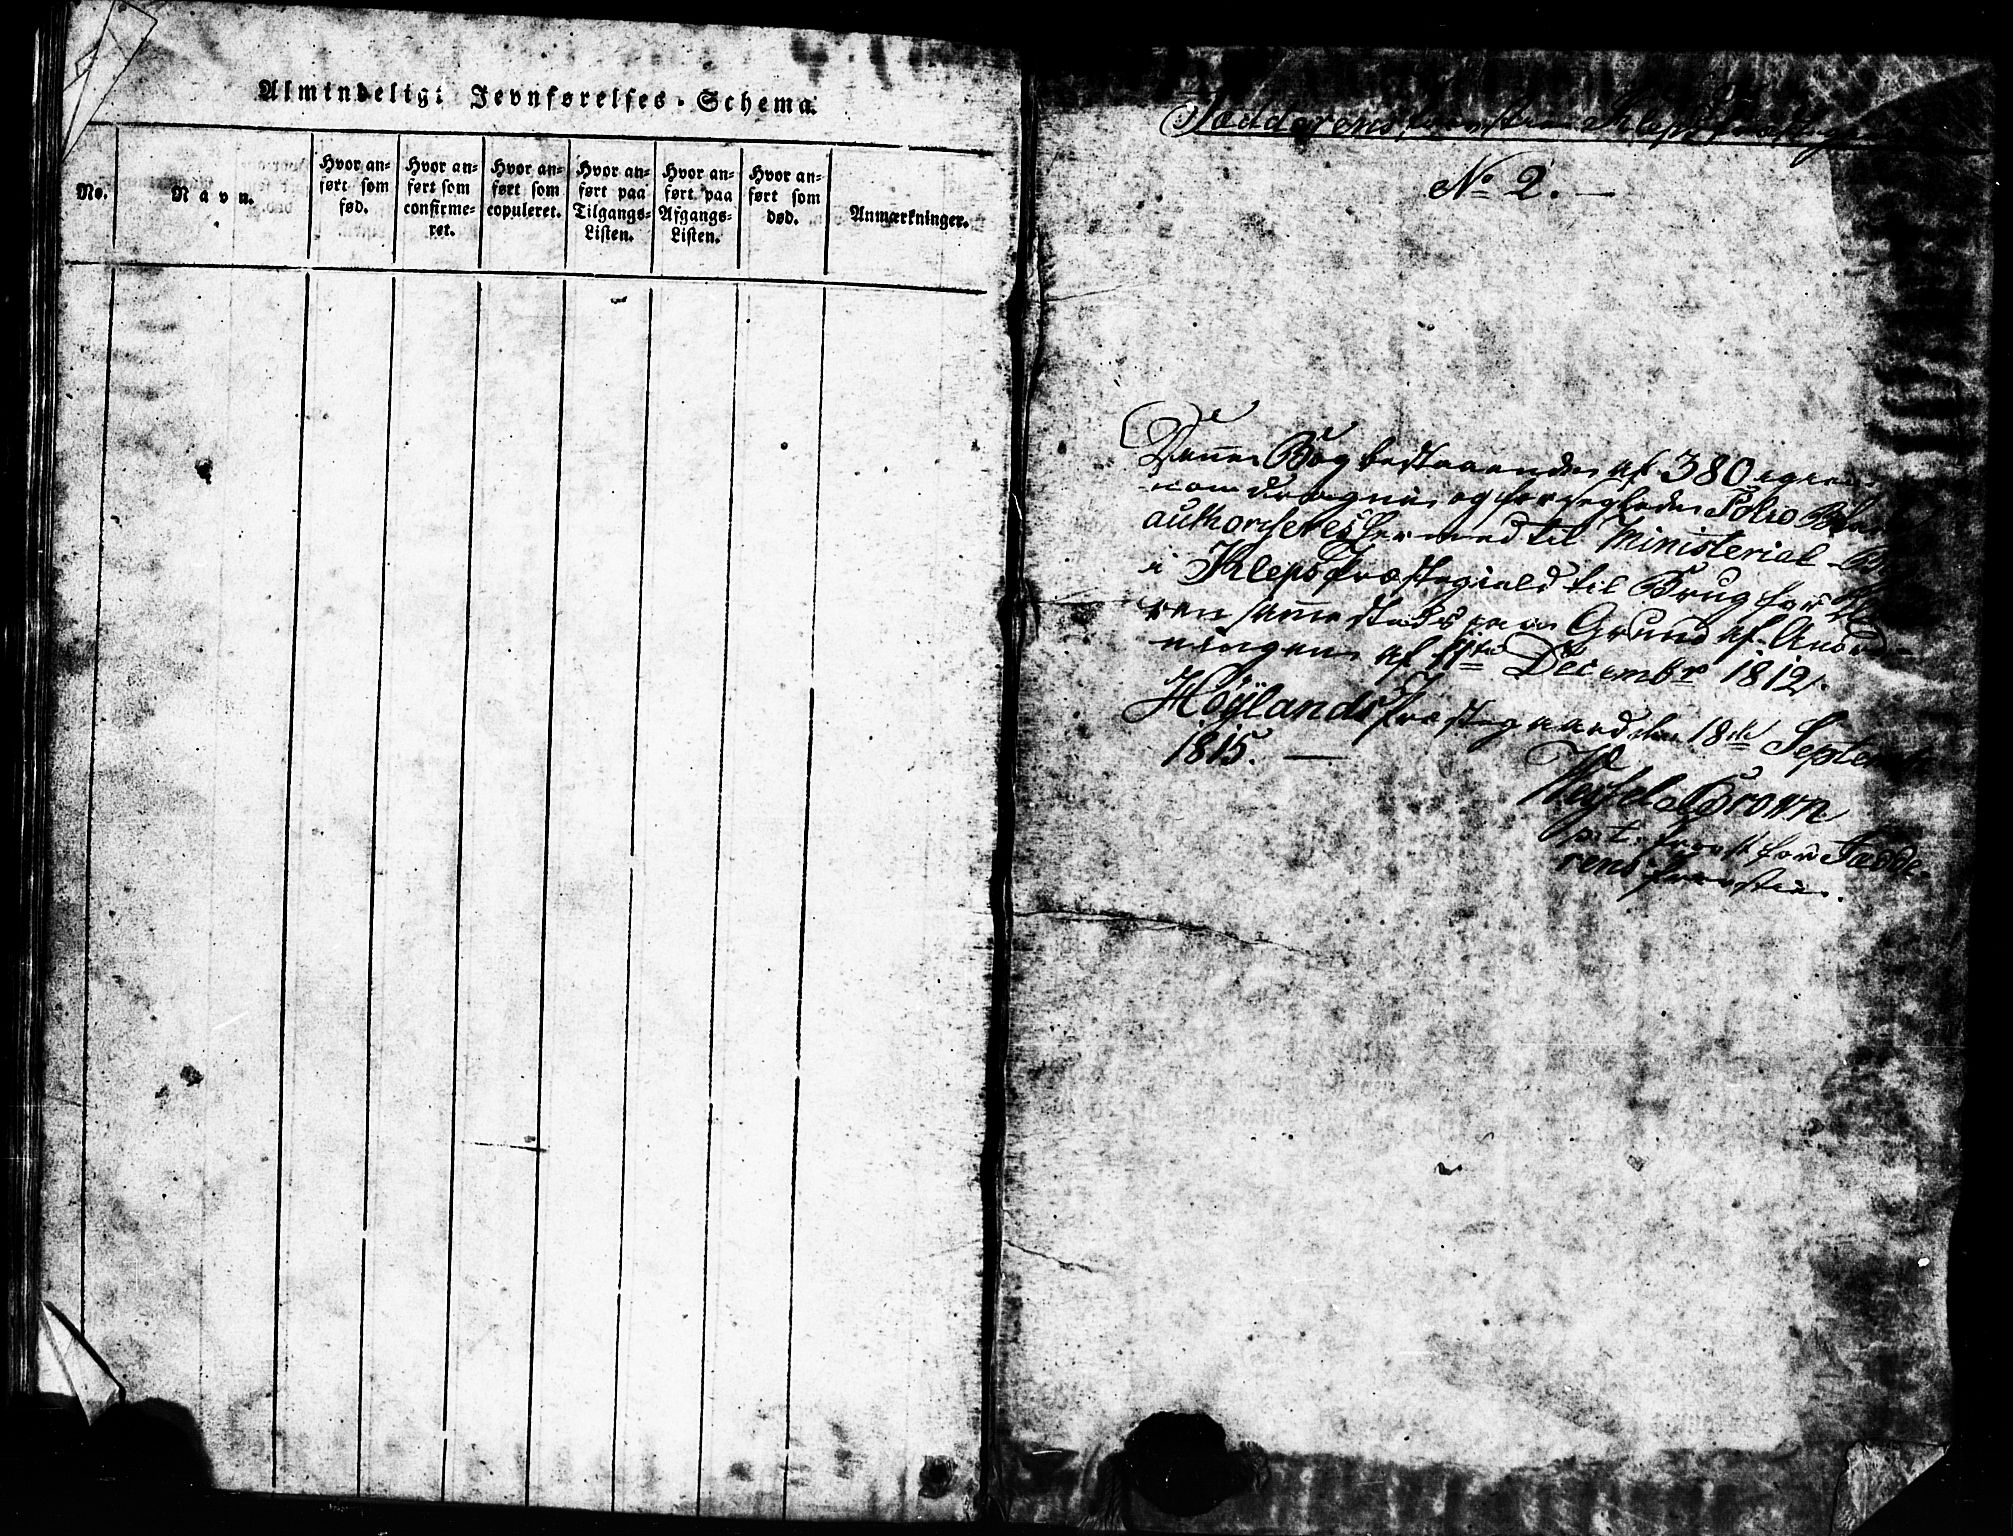 Almindeligt Jevnførelses-Schema.
No.
Navn.
Hvor an-
ført som
fød.
Hvor an-
ført som
confirme-
ret.
Hvor an-
ført som
copuleret.
Hvor an-
ført paa
Tilgangs-
Listen.
Hvor an-
ført paa
Afgangs-
Listen.
Hvor an-
ført som
død.
Anmærkninger.
Jædderens Provstie Kleps Præstegield
No 2. —
Denne Bog bestaaende af 380 igien-
nemdragne og forseglede Folio Blade
authoriseres hermed til Ministerial-Bog
i Kleps Præstegield til Brug for
ren sammesteds paa Grund af Anord-
ningen af 11te Decembr 1812.
Höÿlands Præstegaard den 18de Septembr
1815. —
Wessel Brown
pt. Provst for Jædde-
rens Provstie.